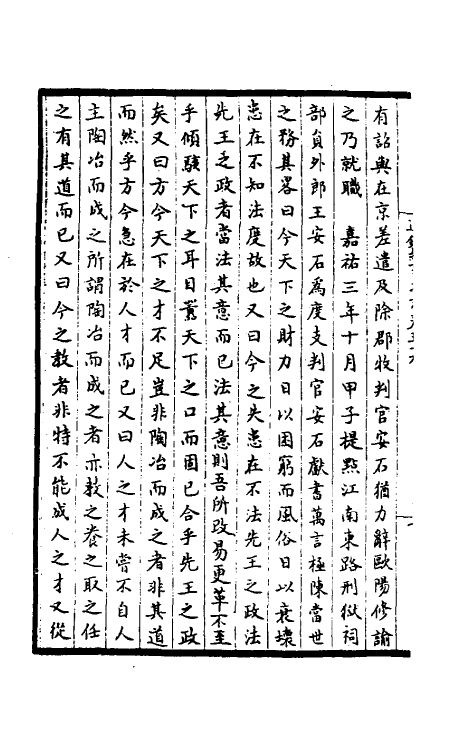 有詔與在京差遣及除郡牧判官安石猶力辭歐陽修諭
之乃就職　嘉祐三年十月甲子提點江南東路刑獄祠
部員外郎王安石為度支判官安石獻書萬言極陳當世
之務其畧曰今天下之財力日以困窮而風俗日以衰壞
患在不知法度故也又曰今之失患在不法先王之政法
先王之政者當法其意而已法其意則吾所改易更革不至
乎傾駭天下之耳目囂天下之口而固已合乎先王之政
矣又曰方今天下之才不足豈非陶冶而成之者非其道
而然乎方今急在於人才而已又曰人之才未嘗不自人
主陶冶而成之所謂陶冶而成之者亦教之養之取之任
之有其道而已又曰今之教者非特不能成人之才又從